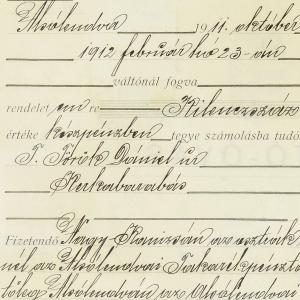 Alsólendva 1911. október
1912 február hó 23-án
váltónál fogva
rendelet em re Kilenczszáz
értéke készpénzben tegye számolásba tudó
T. Török Dániel úr
Kerkabarabás
Fizetendő Nagy-Kanizsán az osztrák
nél az Alsólendvai Takarékpénzt
tőleg Alsólendván az Alsólendvai